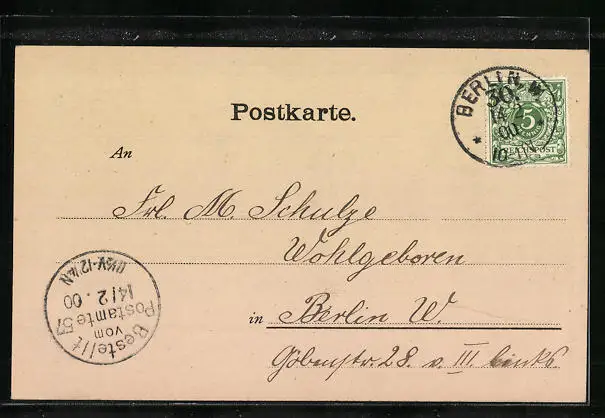 Postkarte.
BERLIN W
30
14 2
00
10-11V
5
REICHSPOST
An
Frl. M. Schulze
Wohlgeboren
in Berlin W.
Göbenstr. 28. v. III. links.
11½V-12¼N
14/2.00
Bestellt
vom
Postamte 57